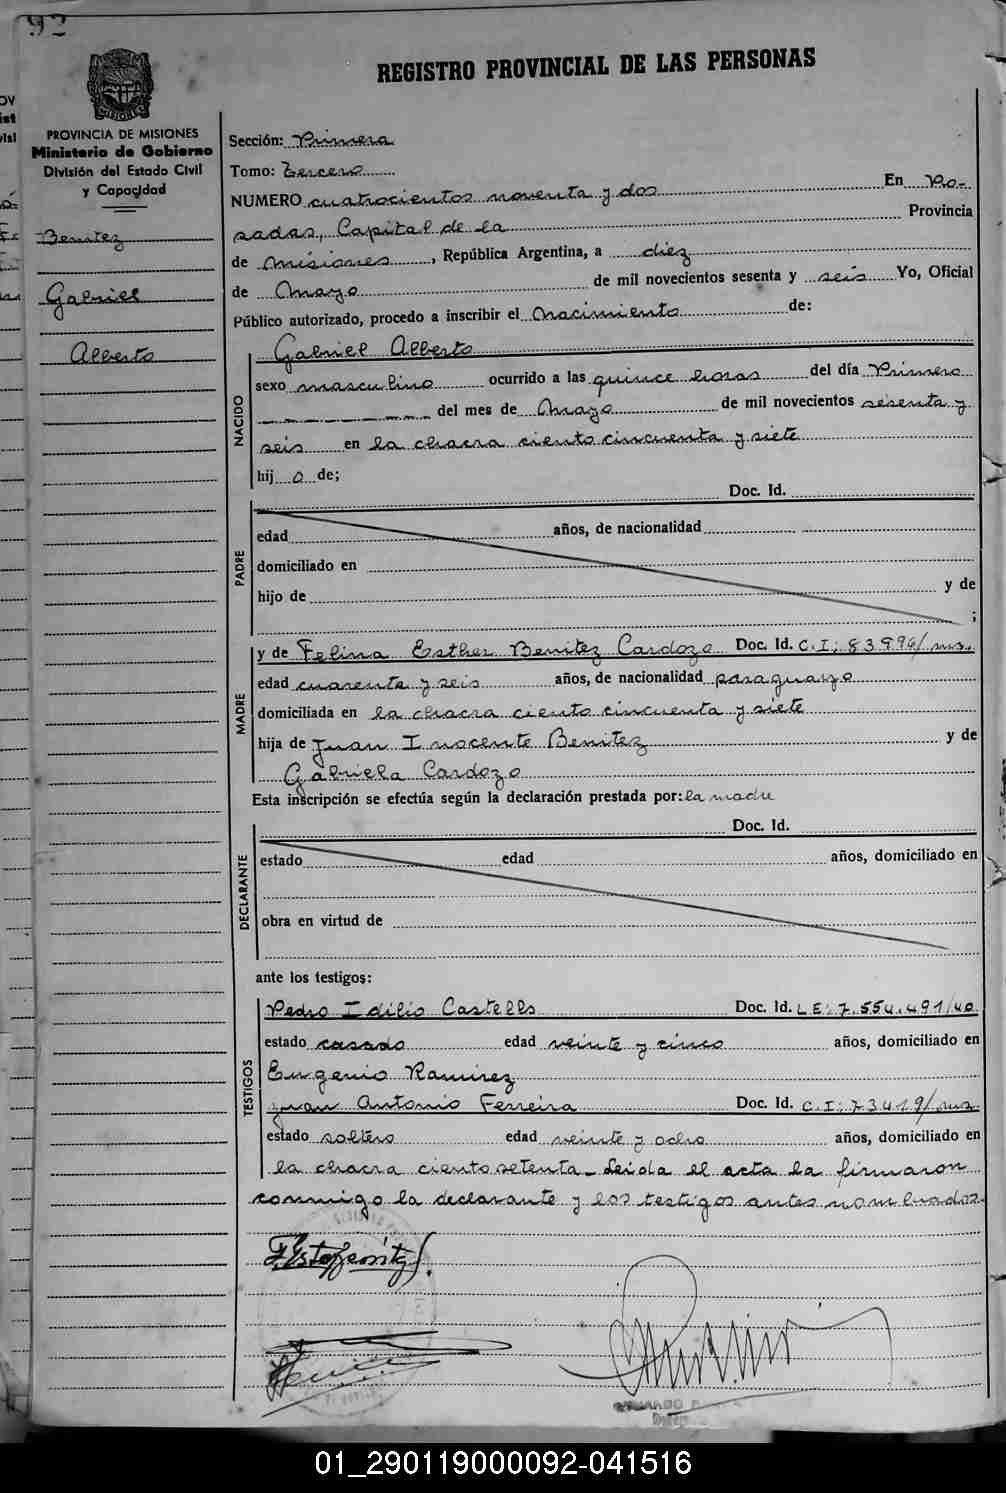 92
REGISTRO PROVINCIAL DE LAS PERSONAS
MISIONES
PROVINCIA DE MISIONES
Ministerio de Gobierno
División del Estado Civil
y Capacidad
Benitez
Gabriel
Alberto
Sección: Primera
Tomo: Tercero
NUMERO cuatrocientos noventa y dos En Po-
sadas, Capital de la Provincia
de Misiones, República Argentina, a diez
de Mayo de mil novecientos sesenta y seis Yo, Oficial
Público autorizado, procedo a inscribir el Nacimiento de:
NACIDO
Gabriel Alberto
sexo masculino ocurrido a las quince horas del día Primero
del mes de Mayo de mil novecientos sesenta y
seis en la chacra ciento cincuenta y siete
hij o de;
PADRE
Doc. Id.
edad años, de nacionalidad
domiciliado en
hijo de y de
;
MADRE
y de Felina Esther Benitez Cardozo Doc. Id. C.I: 83996/mz.
edad cuarenta y seis años, de nacionalidad paraguayo
domiciliada en la chacra ciento cincuenta y siete
hija de Juan Inocente Benitez y de
Gabriela Cardozo
Esta inscripción se efectúa según la declaración prestada por: la madre
DECLARANTE
Doc. Id.
estado edad años, domiciliado en
obra en virtud de
ante los testigos:
TESTIGOS
Pedro Idilio Castells Doc. Id. L E: 7.554.491/40
estado casado edad veinte y cinco años, domiciliado en
Eugenio Ramirez
Juan Antonio Ferreira Doc. Id. C.I: 73419/mz
estado soltero edad veinte y ocho años, domiciliado en
la chacra ciento setenta_ Leida el acta la firmaron
conmigo la declarante y los testigos antes nombrados.
01_290119000092-041516